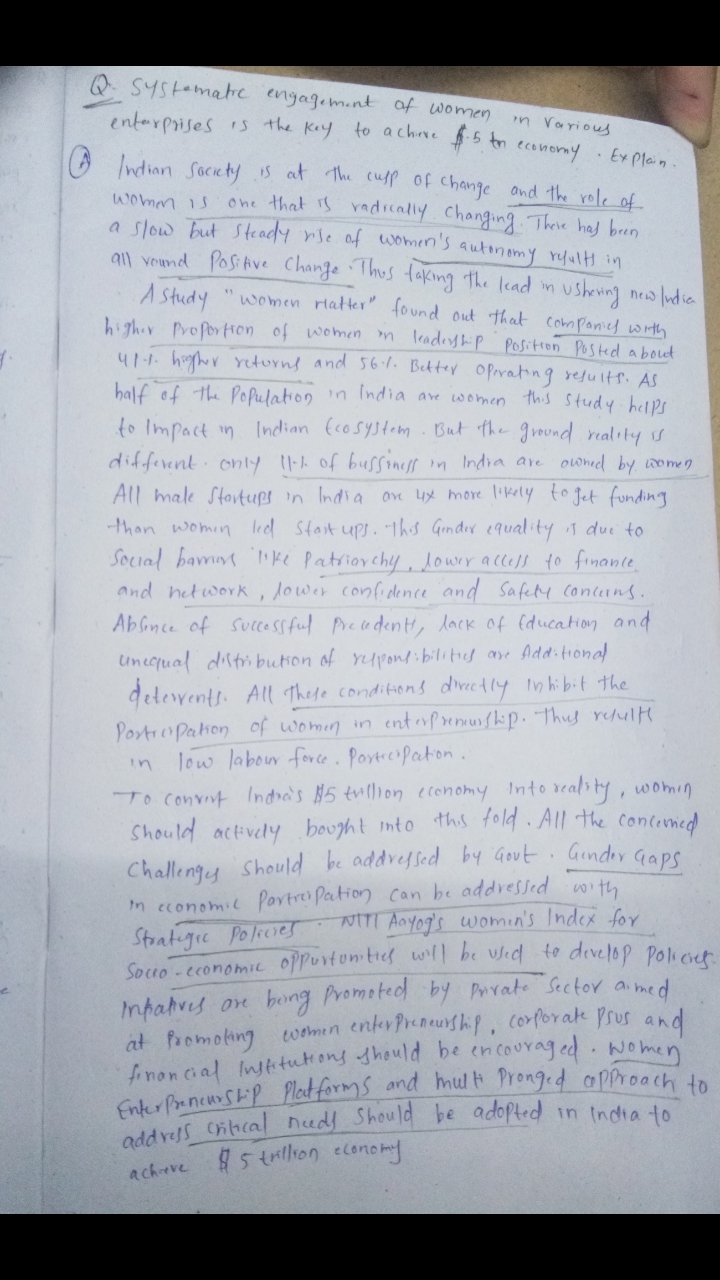 Q. Systematic engagement of women in various
enterprises is the key to achieve $.5 tn economy. Explain.
A Indian Society is at the cusp of change and the role of
women is one that is radically changing. There has been
a slow but steady rise of women's autonomy results in
all round Positive Change. Thus taking the lead in ushering new India
A study "women Matter" found out that companies with
higher Proportion of women in leadership Position Posted about
41% higher returns and 56% Better operating results. As
half of the Population in India are women this study helps
to Impact in Indian Ecosystem. But the ground reality is
different. only 11% of bussiness in India are owned by women
All male Startups in India are 4x more likely to get funding
than women led Startups. This Gender equality is due to
Social barriers like Patriarchy, lower access to finance
and network, lower confidence and Safety concerns.
Absence of Successful Precedents, lack of Education and
unequal distribution of responsibilities are Additional
deterrents. All These conditions directly Inhibit the
Participation of women in enterpreneurship. Thus results
in low labour force. Participation.
To convert India's $5 trillion economy Into reality, women
should actively bought into this fold. All the concerned
Challenges should be addressed by Govt. Gender Gaps
in economic Participation can be addressed with
Strategic Policies. NITI Aayog's women's Index for
Socio-economic oppurtunities will be used to develop Policies.
Intiatives are being Promoted by Private Sector aimed
at Promoting women enterPreneurship, corporate PSUs and
financial Institutions should be encouraged. Women
EnterPreneurship Platforms and multi Pronged approach to
address critical needs should be adopted in India to
achieve $5 trillion economy